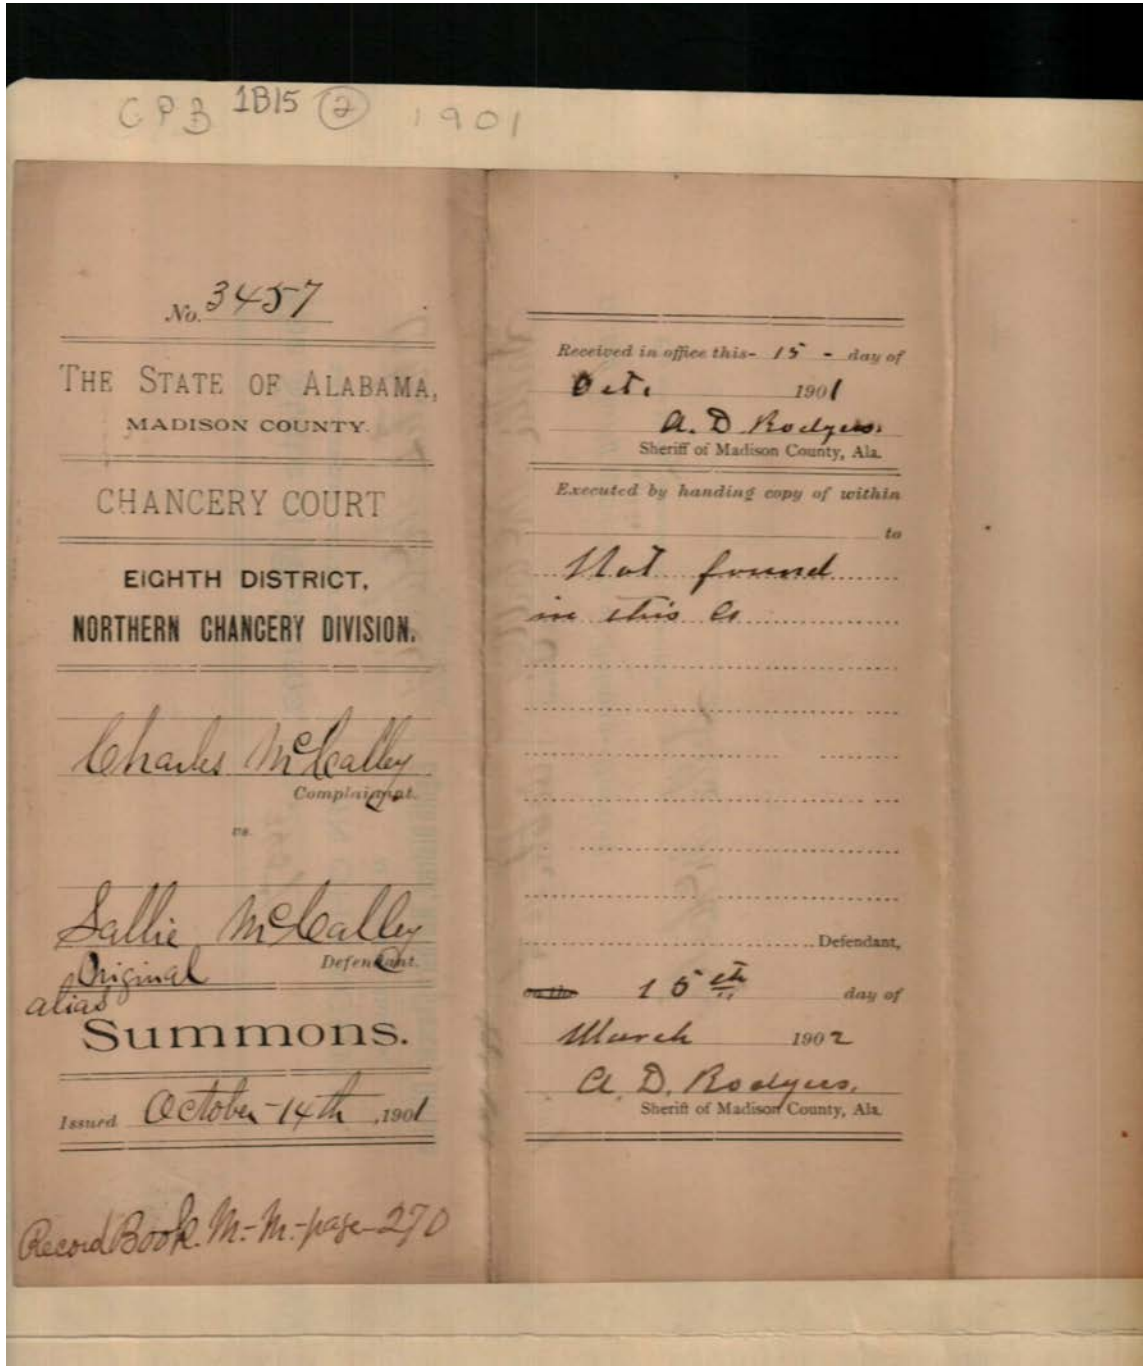 CPB 1B15 2 1901
No. 3457
THE STATE OF ALABAMA,
MADISON COUNTY.
CHANCERY COURT
EIGHTH DISTRICT,
NORTHERN CHANCERY DIVISION.
Charles McCalley
Complainant.
vs.
Sallie McCalley
Defendant.
Original
alias
Summons.
Issued October-14th, 1901
Record Book. M.-M.-page-270
Received in office this- 15 - day of
Oct. 1901
A. D. Rodgers.
Sheriff of Madison County, Ala.
Executed by handing copy of within
to
Not found
in this Co
Defendant,
on the 15th day of
March 1902
A. D. Rodgers.
Sheriff of Madison County, Ala.